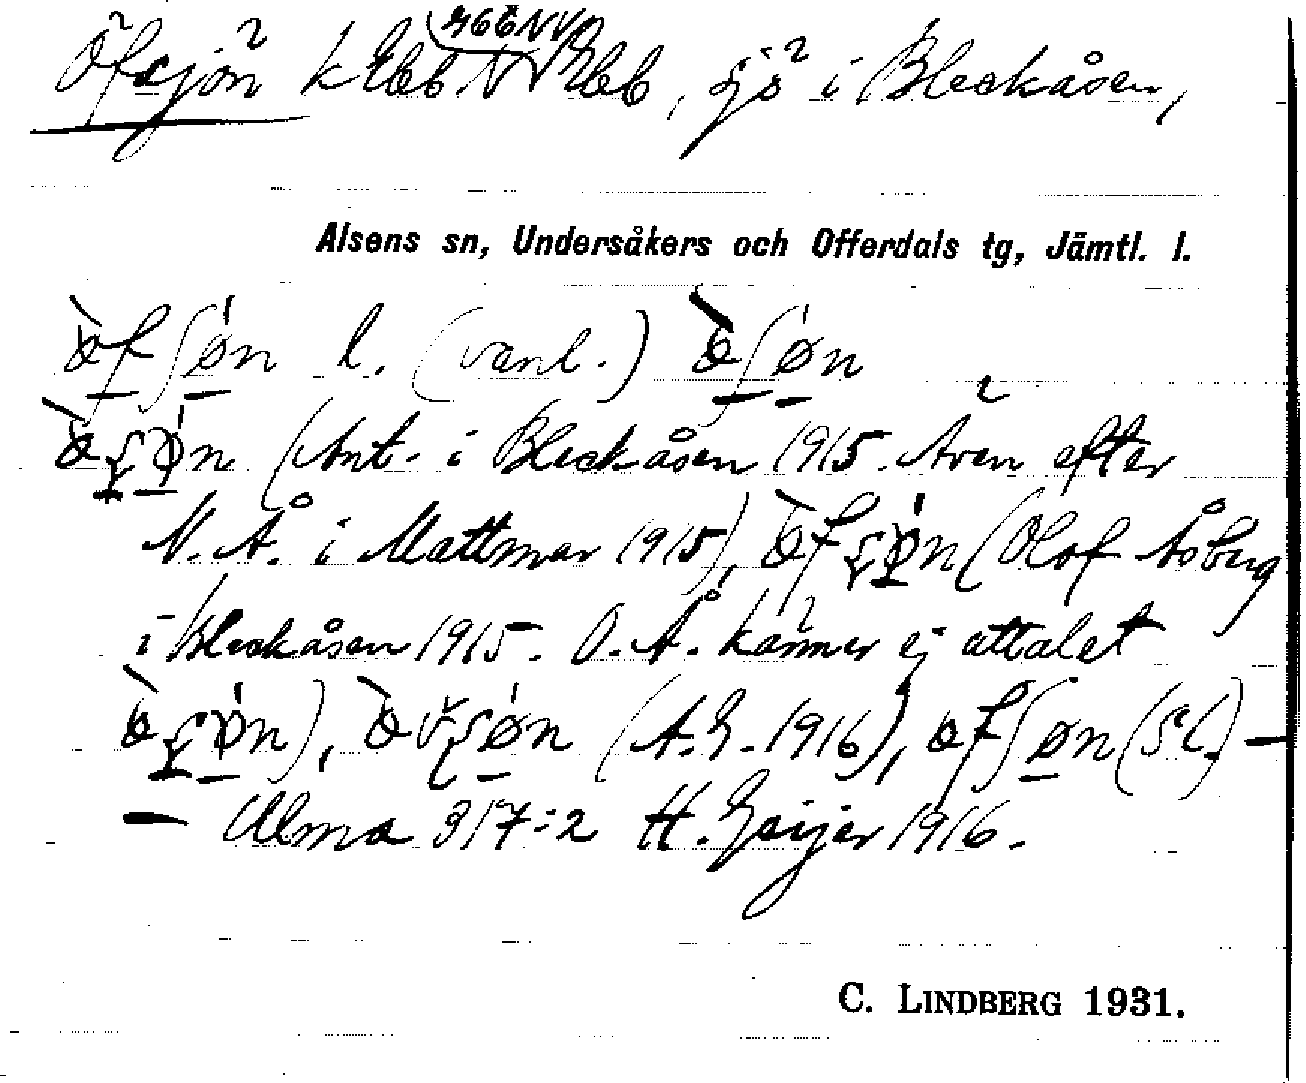 Öfsjön k Ebb NV Ebb, sjö i Bleckåsen,
Alsens sn, Undersåkers och Offerdals tg, Jämtl. l.
œ̀fʃøn l. (vanl.) œ̀ʃøn
(Ant. i Bleckåsen 1915. Även efter
N. Å. i Mattmar 1915), (Olof Åsberg
i Bleckåsen 1915. O. Å. känner ej attalet
(A.G. 1916), œfʃøn
– Alma 317:2 H. Geijer 1916.
C. LINDBERG 1931.